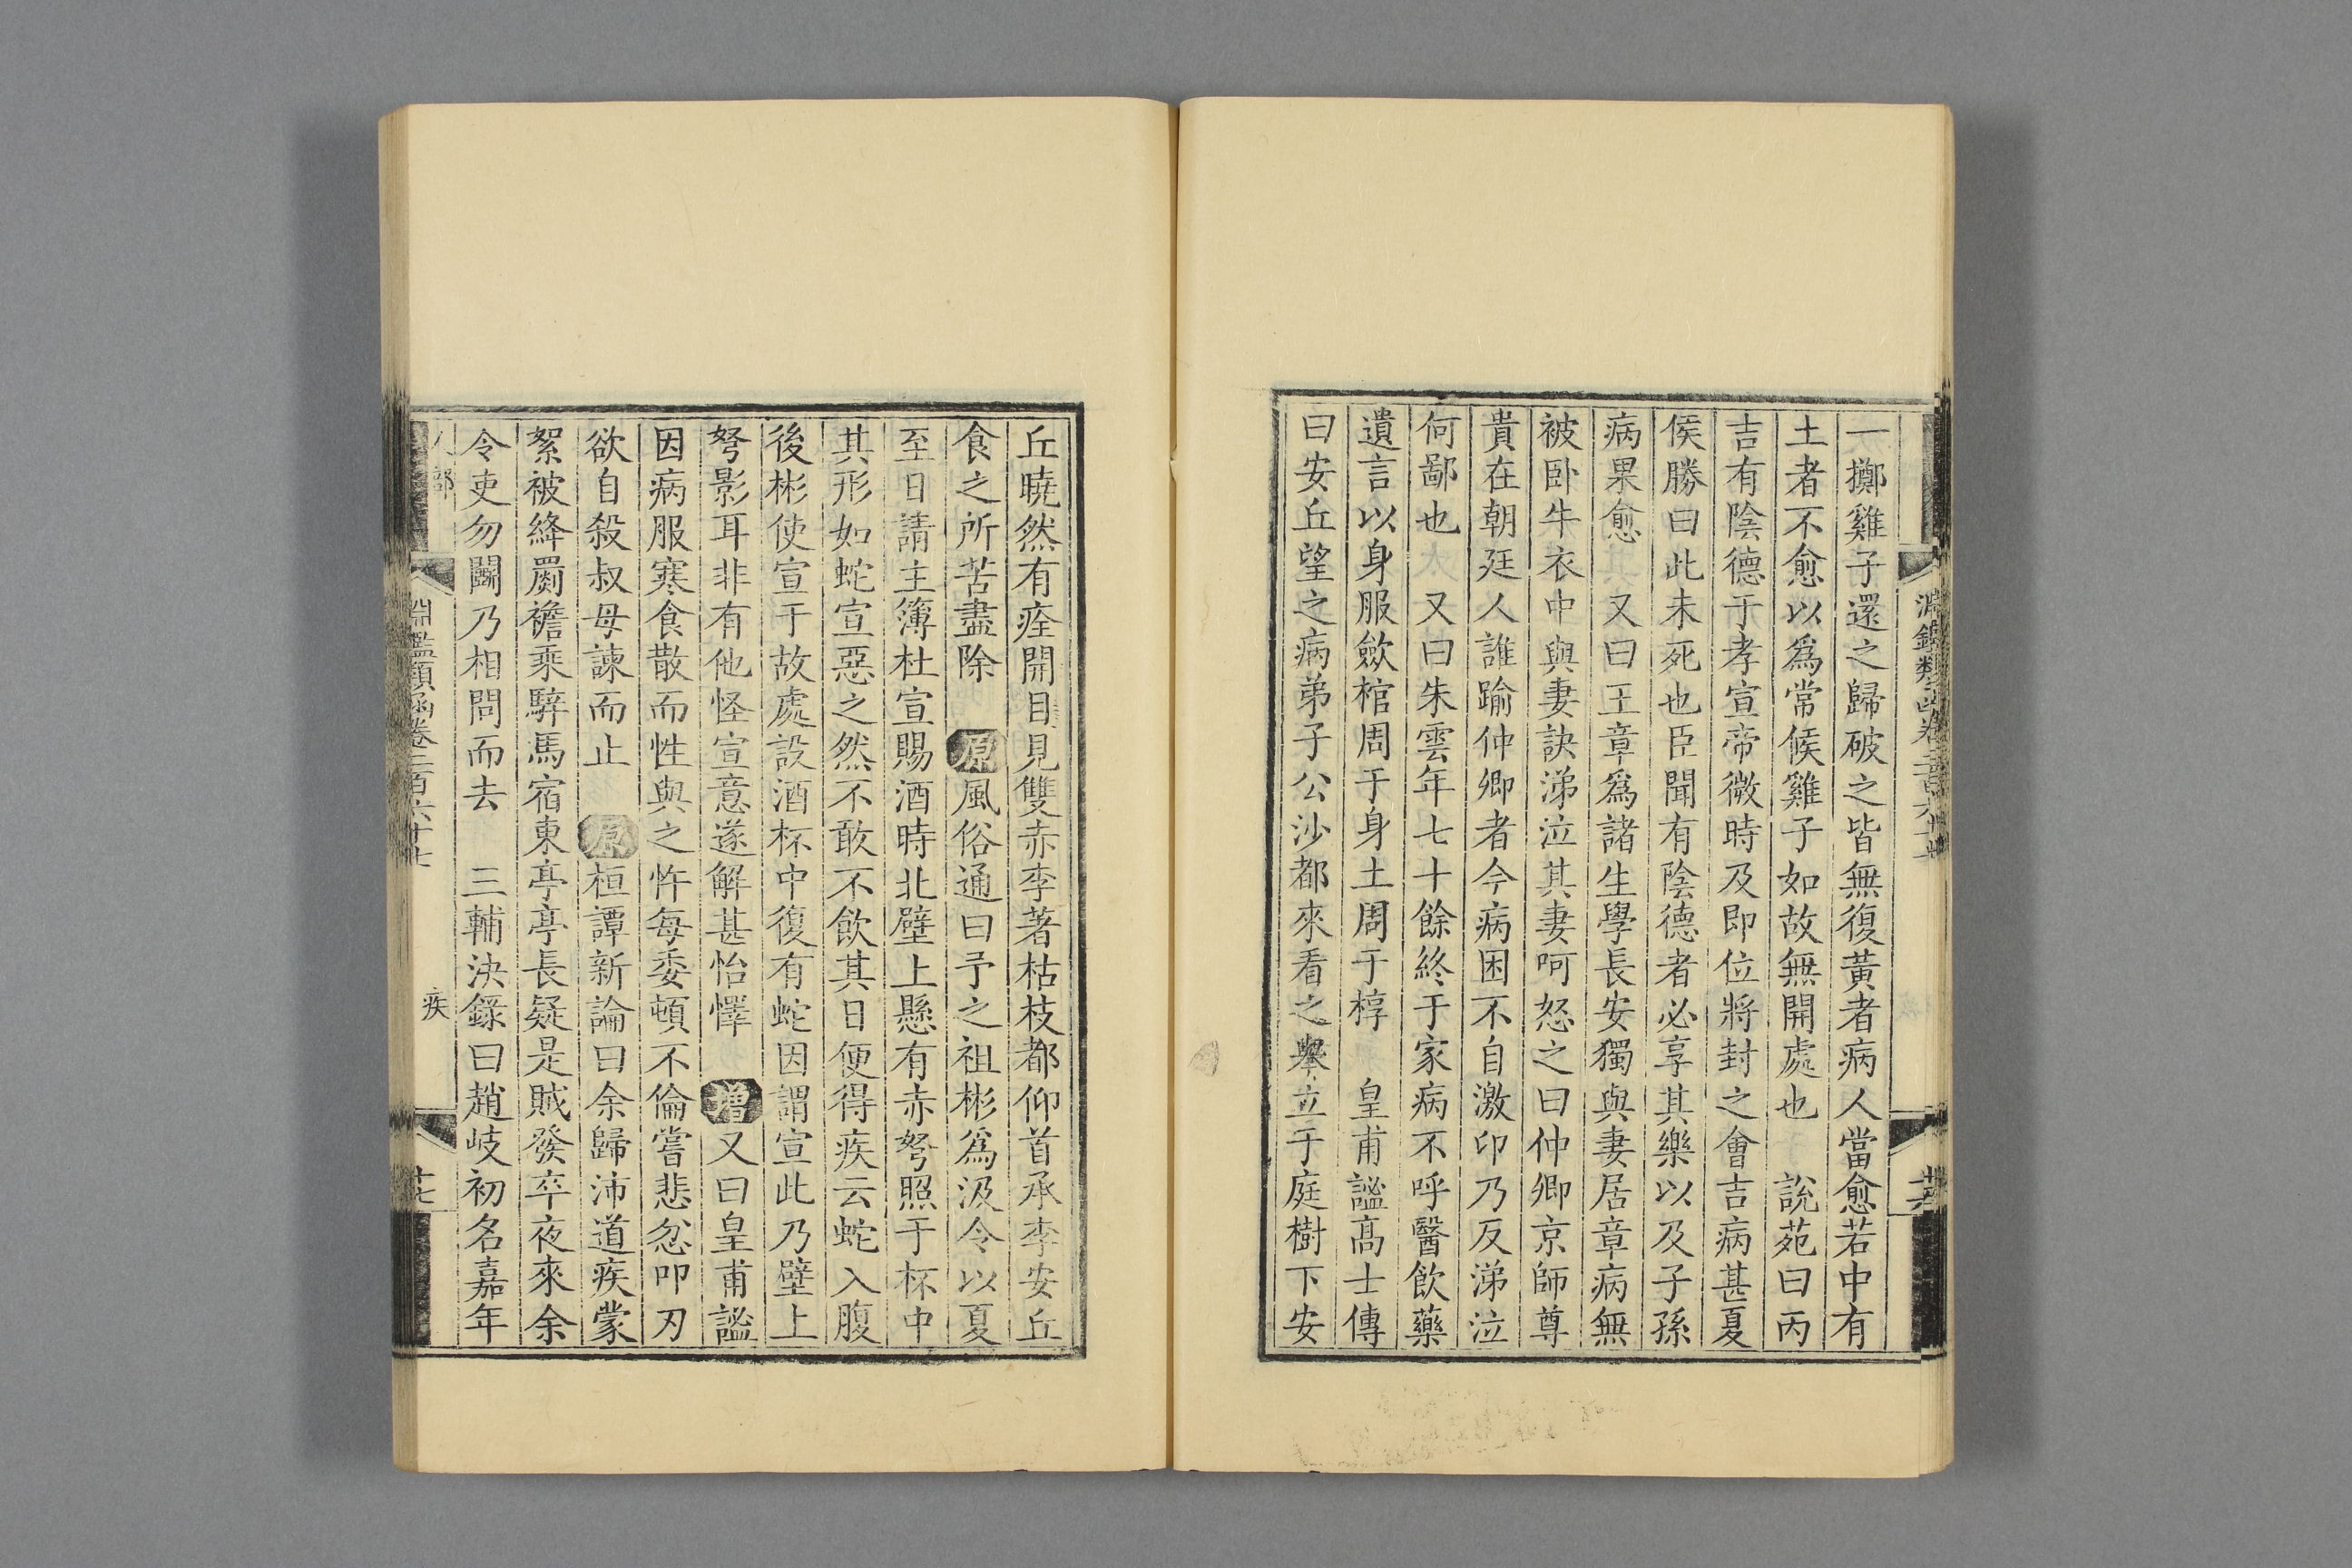 一擲雞子還之歸破之皆無復黃者病人當愈若中有
土者不愈以爲常候雞子如故無開處也　說苑曰丙
吉有陰德于孝宣帝微時及即位將封之會吉病甚夏
侯勝曰此未死也臣聞有陰德者必享其樂以及子孫
病果愈　又曰王章爲諸生學長安獨與妻居章病無
被卧牛衣中與妻訣涕泣其妻呵怒之曰仲卿京師尊
貴在朝廷人誰踰仲卿者今病困不自激卬乃反涕泣
何鄙也　又曰朱雲年七十餘終于家病不呼醫飲藥
遺言以身服歛棺周于身土周于椁　皇甫謐高士傳
曰安丘望之病弟子公沙都來看之舉立于庭樹下安
丘曉然有痊開目見雙赤李著枯枝都仰首承李安丘
食之所苦盡除　原風俗通曰予之祖彬爲汲令以夏
至日請主簿杜宣賜酒時北壁上懸有赤弩照于杯中
其形如蛇宣惡之然不敢不飲其日便得疾云蛇入腹
後彬使宣于故處設酒杯中復有蛇因謂宣此乃壁上
弩影耳非有他怪宣意遂解甚怡懌　增又曰皇甫謐
因病服寒食散而性與之忤每委頓不倫嘗悲忿叩刃
欲自殺叔母諫而止　原桓譚新論曰余歸沛道疾蒙
絮被絳罽襜乘騂馬宿東亭亭長疑是賊發卒夜來余
令吏勿鬭乃相問而去　三輔決錄曰趙岐初名嘉年
淵鑑類函卷二百六十七
疾
十七